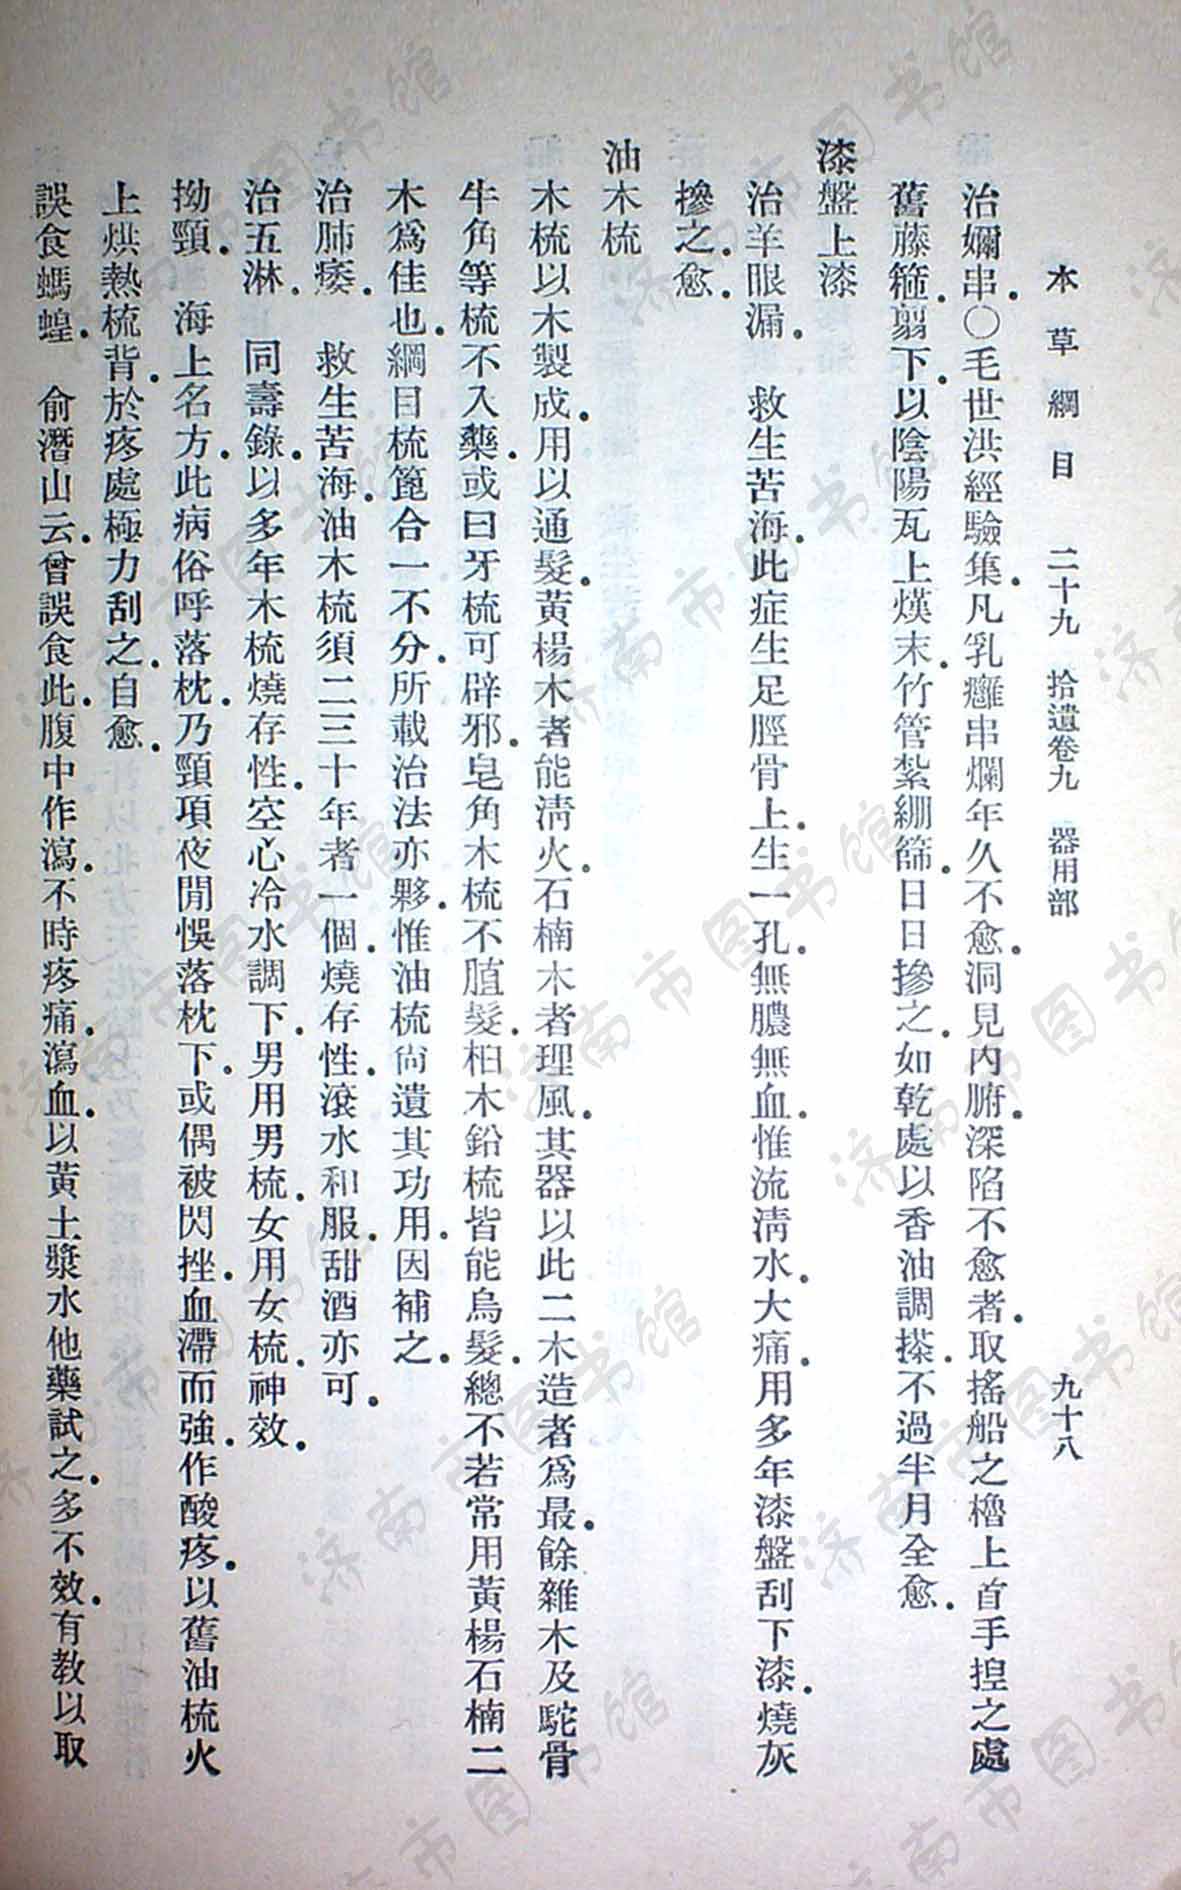 本草綱目 二十九 拾遺卷九 器用部 九十八
治嬭串。○毛世洪經驗集。凡乳癰串爛年久不愈。洞見內腑。深陷不愈者。取搖船之櫓上首手揑之處
舊藤箍。剪下。以陰陽瓦上煐末。竹管紮綳篩。日日摻之。如乾處以香油調搽。不過半月全愈。
漆盤上漆
治羊眼漏。 救生苦海。此症生足脛骨上。生一孔。無膿無血。惟流淸水。大痛。用多年漆盤刮下漆。燒灰
摻之。愈。
油木梳
木梳以木製成。用以通髮。黃楊木者能淸火。石楠木者理風。其器以此二木造者爲最。餘雜木及駝骨
牛角等梳不入藥。或曰牙梳可辟邪。皂角木梳不脜髮。柏木鉛梳皆能烏髮。總不若常用黃楊石楠二
木爲佳也。綱目梳篦合一不分。所載治法亦夥。惟油梳尙遺其功用。因補之。
治肺痿。 救生苦海。油木梳須二三十年者一個。燒存性。滾水和服。甜酒亦可。
治五淋。 同壽錄。以多年木梳燒存性。空心冷水調下。男用男梳。女用女梳。神效。
拗頸。 海上名方。此病俗呼落枕。乃頸項夜閒悞落枕下。或偶被閃挫。血滯而強。作酸疼。以舊油梳火
上烘熱。梳背。於疼處極力刮之。自愈。
誤食螞蝗。 俞潛山云。曾誤食此。腹中作瀉。不時疼痛。瀉血。以黃土漿水他藥試之。多不效。有教以取